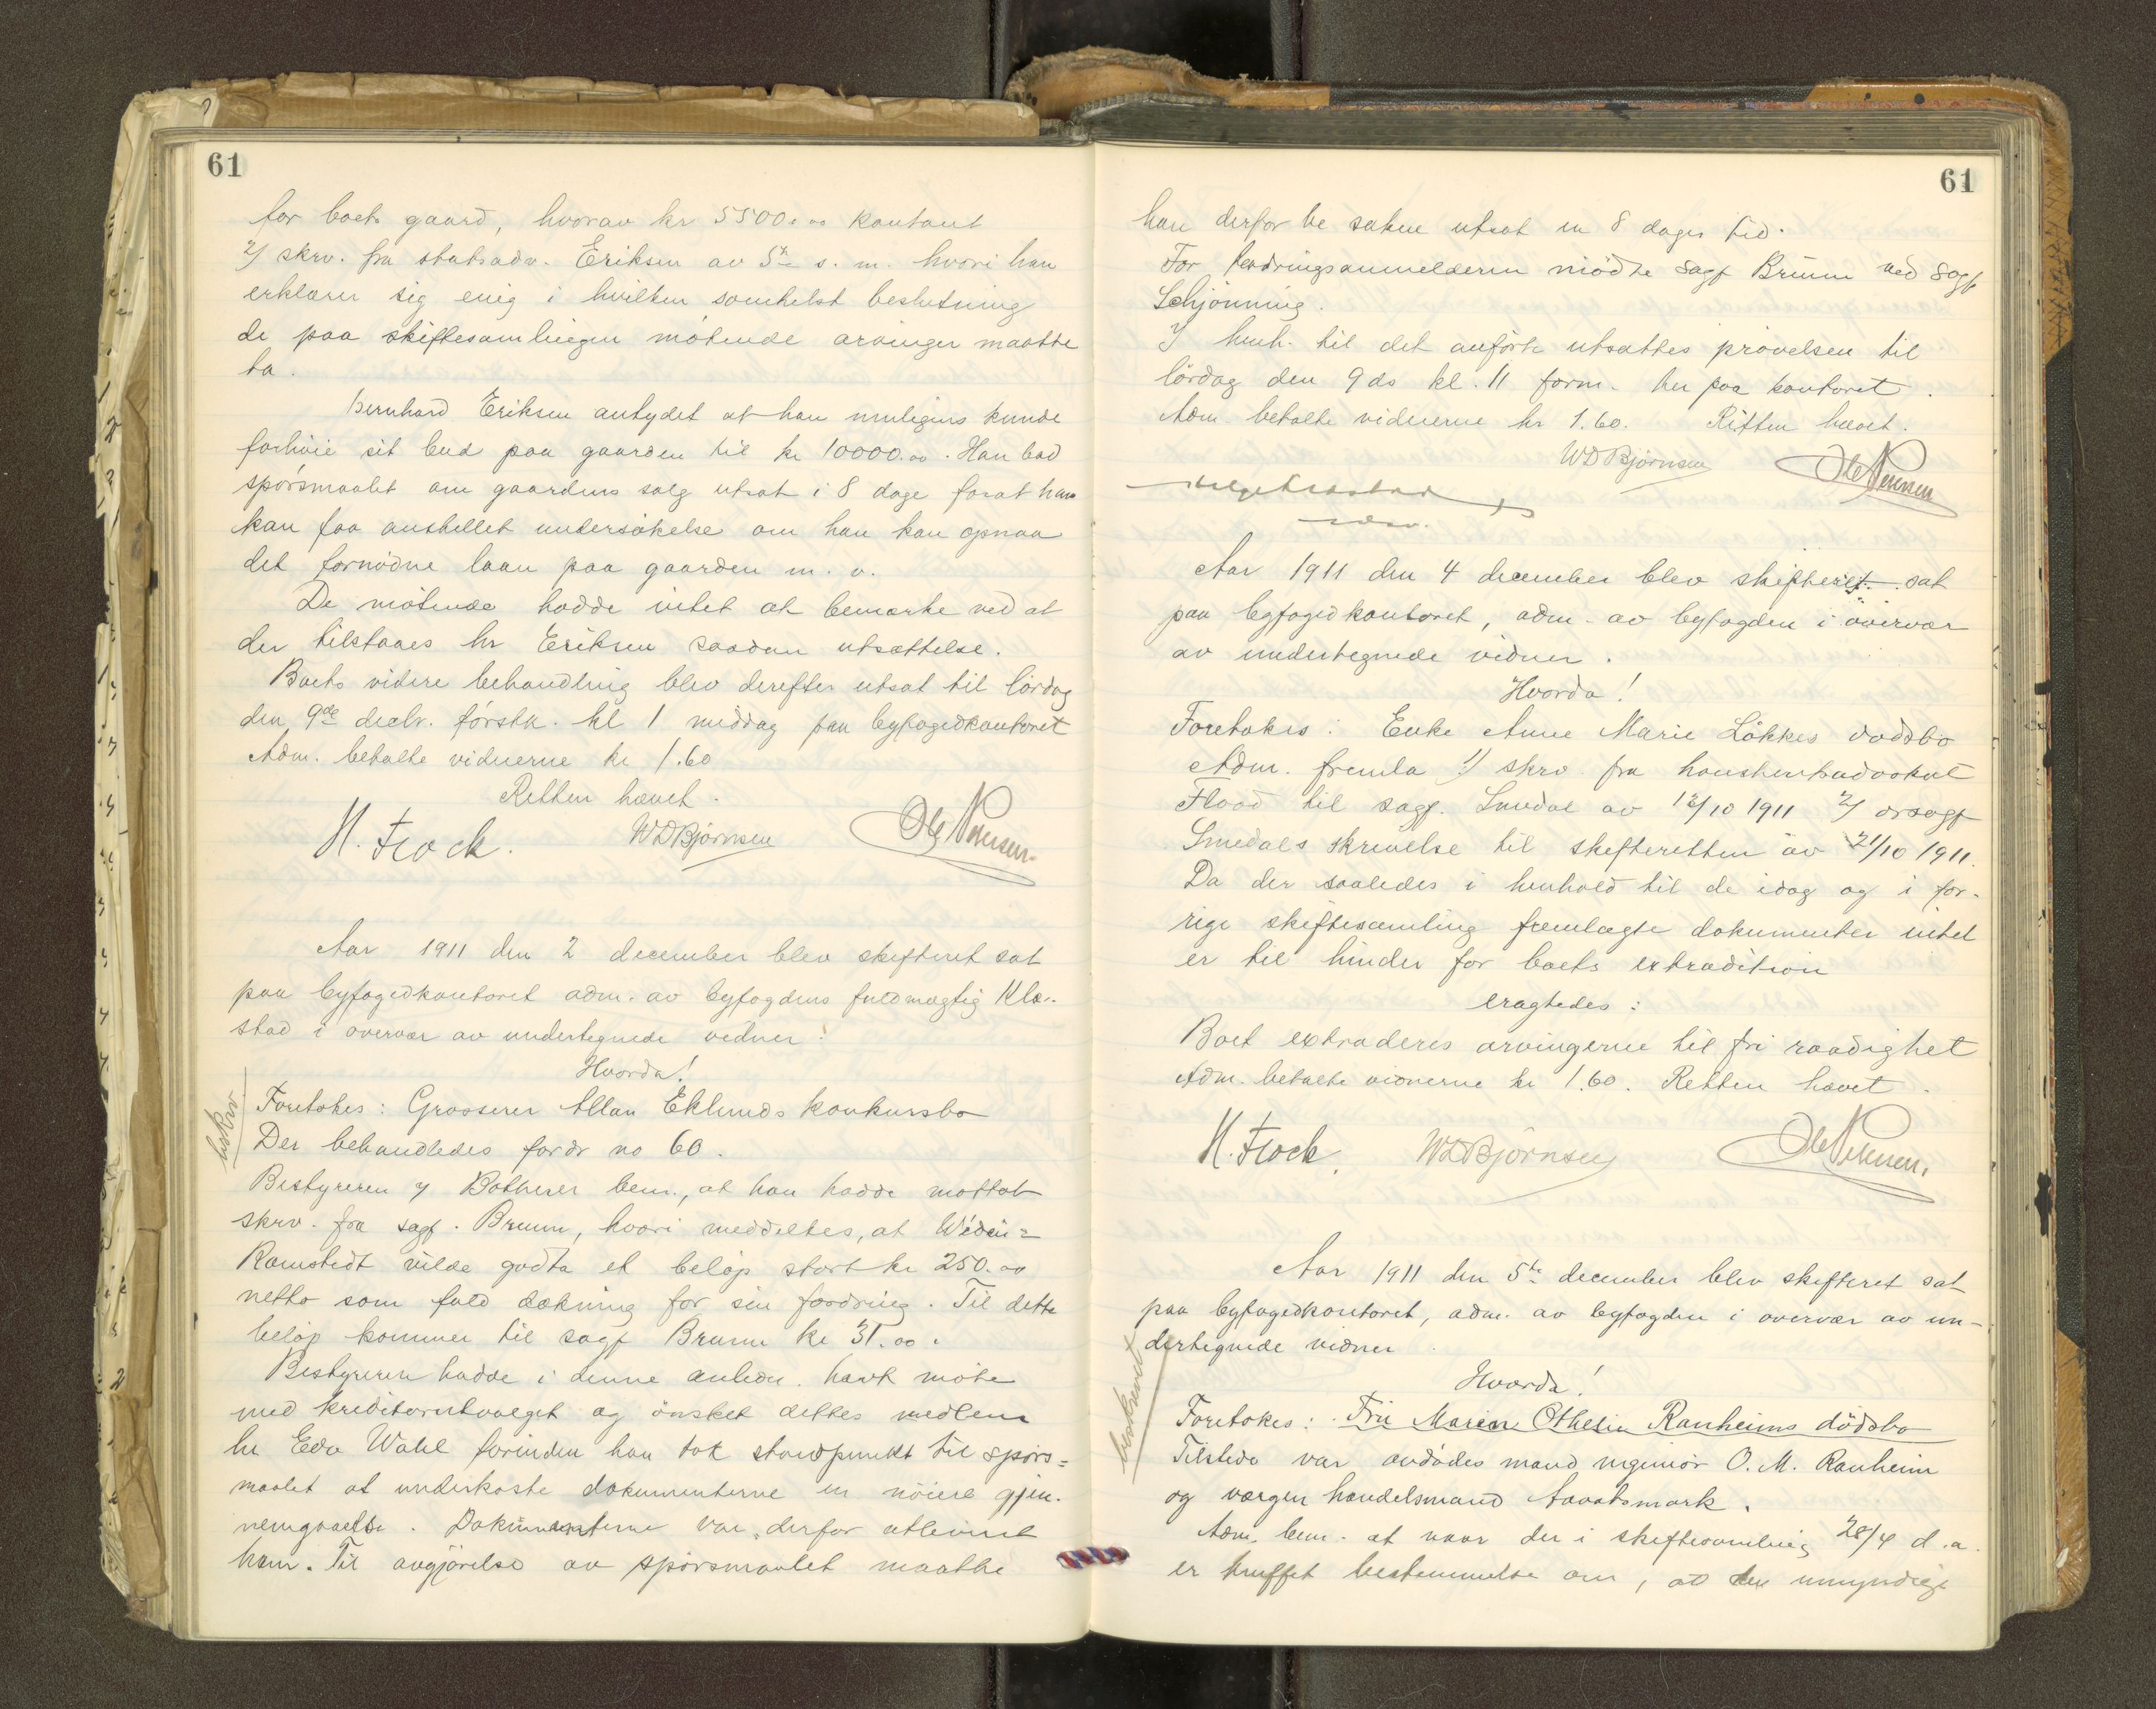 61
for boets gaard, hvorav kr 5500.00 kontant
2) skrv. fra statsadv. Eriksen av 5te s. m. hvori han
erklærer sig enig i hvilken somhelst beslutning
de paa skiftesamlingen møtende arvinger maatte
ta.
Bernhard Eriksen antydet at han muligens kunde
forhöie sit bud paa gaarden til kr 10000.00. Han bad
spörsmaalet om gaardens salg utsat i 8 dage forat han
kan faa anstillet undersökelse om han kan opnaa
det fornödne laan paa gaarden m. v.
De mötende hadde intet at bemærke ved at
der tilstaaes hr Eriksen saadan utsættelse.
Boets videre behandling blev derefter utsat til lördag
den 9de decbr. förstk. kl 1 middag paa byfogedkontoret
Adm. betalte vidnerne kr 1.60
Retten hævet.
H. Flock. WDBjörnsen
Aar 1911 den 2 december blev skifteret sat
paa byfogedkontoret adm. av byfogdens fuldmægtig Klæ-
stad i overvær av undertegnede vidner.
Hvorda!
beskrv.
Foretokes: Grosserer Allan Eklunds konkursbo
Der behandledes fordr no 60.
Bestyreren bem., at han hadde mottat
skrv. fra sagf. Bruun, hvori meddeltes, at
Ramstedt vilde godta et belöp stort kr 250.00
netto som fuld dækning for sin fordring. Til dette
belöp kommer til sagf Bruun kr 31.00.
Bestyreren hadde i denne anledn. havt möte
med kreditorutvalget og önsket dettes medlem
hr Edv Wahl forinden han tok standpunkt til spörs=
maalet at underkaste dokumenterne en nöiere gjen-
nemgaaelse. Dokumenterne var derfor utleveret
ham. Til avgjörelse av spörsmaalet maatte
61
han derfor be saken utsat en 8 dagers tid.
For fordringsanmelderen mödte sagf Bruun ved sagf
Schjönning.
I henh. til det anförte utsattes prövelsen til
lördag den 9 ds kl. 11 form. her paa kontoret.
Adm. betalte vidnerne kr 1.60. Retten hævet.
WDBjörnsen
Aar 1911 den 4 december blev skifteret sat
paa byfogedkontoret, adm. av byfogden i overvær
av undertegnede vidner.
Hvorda!
Foretokes: Enke Anne Marie Lökkes dödsbo
Adm. fremla 1) skrv. fra
Flood til sagf. Smedal av 12/10 1911 2) orsagf
Smedals skrivelse til skifteretten av 21/10 1911.
Da der saaledes i henhold til de idag og i for-
rige skiftesamling fremlagte dokumenter intet
er til hinder for boets extradition
eragtedes:
Boet extraderes arvingerne til fri raadighet
Adm. betalte vidnerne kr 1.60. Retten hævet.
H. Flock. WDBjörnsen
Aar 1911 den 5te december blev skifteret sat
paa byfogedkontoret, adm. av byfogden i overvær av un-
dertegnede vidner
Hvorda!
beskrevet
Foretokes: Fru Maren Othelie Ranheims dödsbo
Tilstede var avdödes mand ingeniör O. M. Ranheim
og vergen handelsmand Aavatsmark.
Adm. bem. at naar der i skiftesamling 28/4 d. a.
er truffet bestemmelse om, at den umyndige